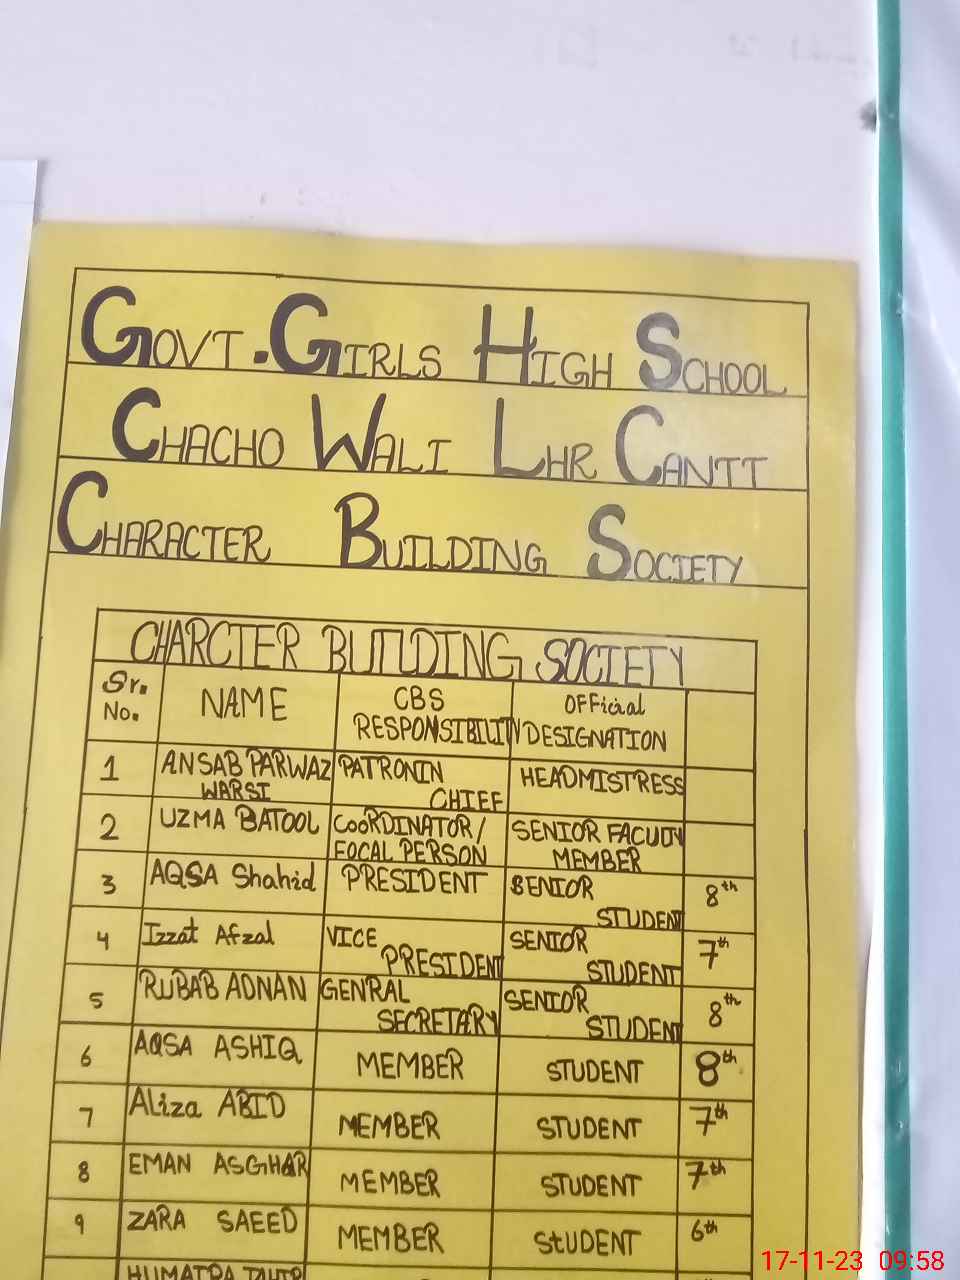 GOVT. GIRLS HIGH SCHOOL
CHACHO WALI LHR CANTT
CHARACTER BUILDING SOCIETY
CHARCTER BUILDING SOCIETY
Sr. No. NAME CBS RESPONSIBILITY OFFicial DESIGNATION
1 ANSAB PARWAZ WARSI PATRONIN CHIEF HEADMISTRESS
2 UZMA BATOOL CooRDINATOR/ FOCAL PERSON SENIOR FACULTY MEMBER
3 AQSA Shahid PRESIDENT SENIOR STUDENT 8th
4 Izzat Afzal VICE PRESIDENT SENIOR STUDENT 7th
5 RUBAB ADNAN GENRAL SECRETARY SENIOR STUDENT 8th
6 AQSA ASHIQ MEMBER STUDENT 8th
7 ALiza ABID MEMBER STUDENT 7th
8 EMAN ASGHAR MEMBER STUDENT 7th
9 ZARA SAEED MEMBER STUDENT 6th
17-11-23 09:58